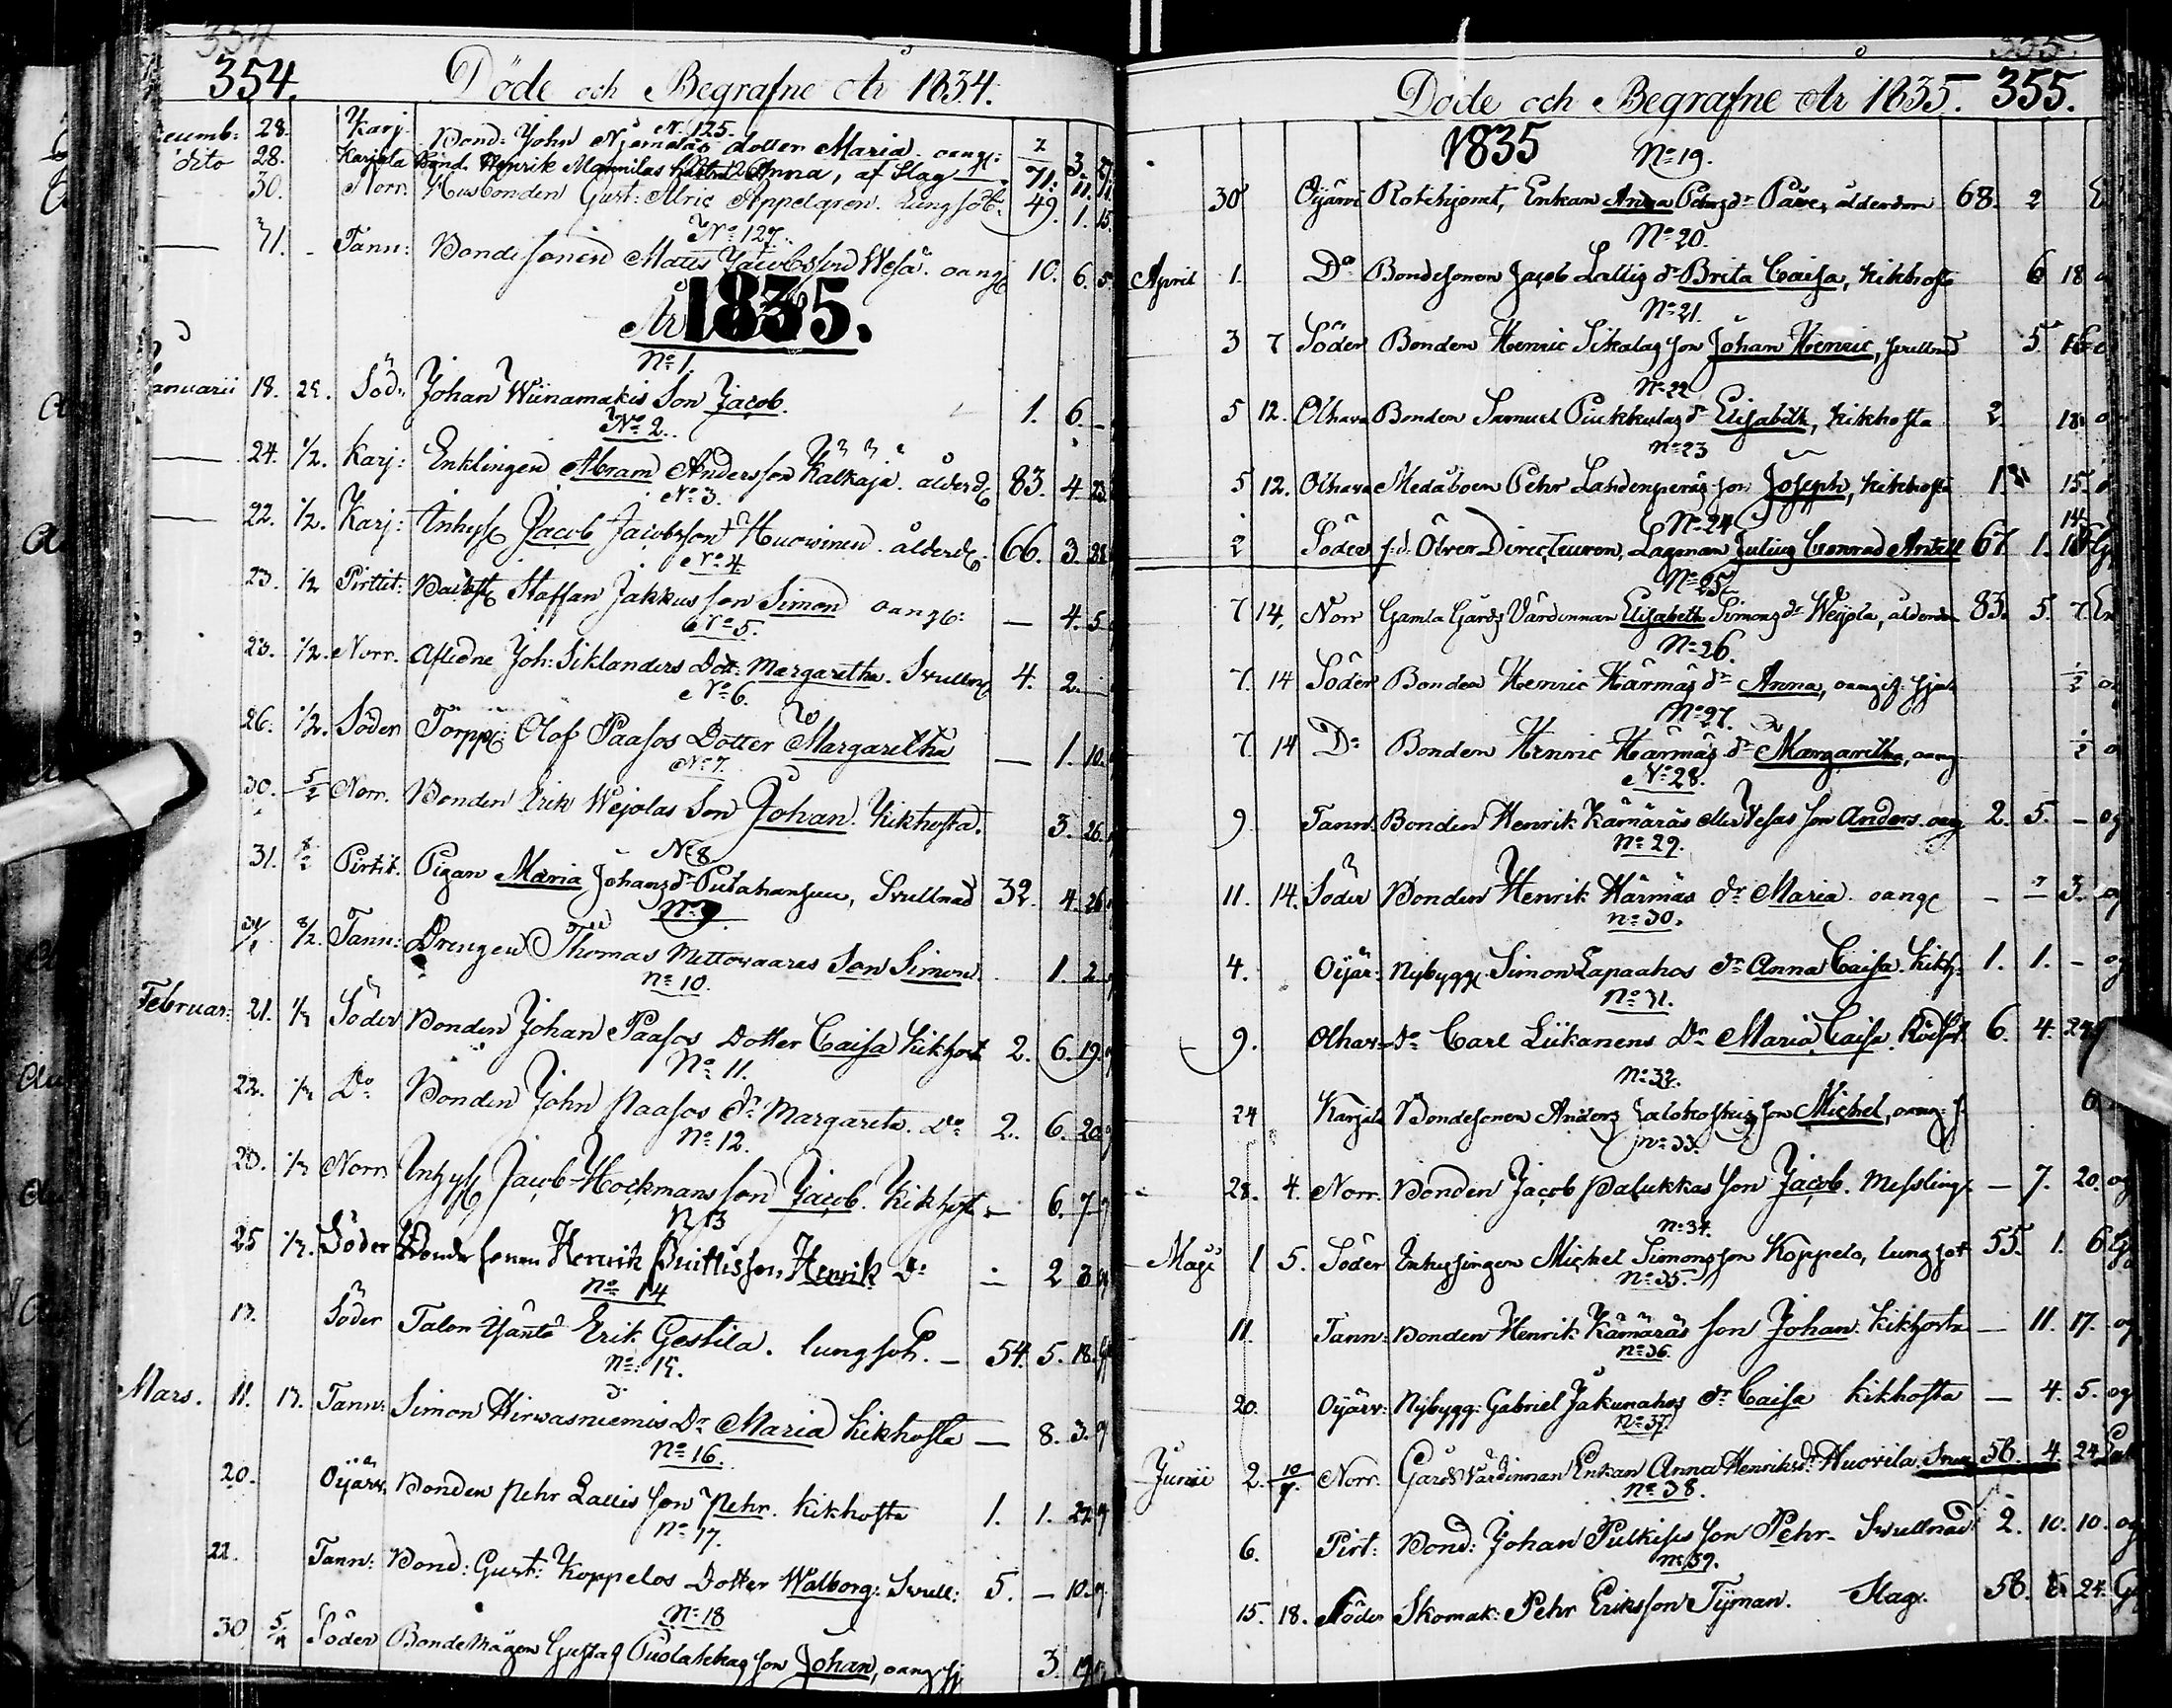 354.
Döde och Begrafne År 1834.
N. 125.
28. Karj. Bond: John dotter Maria oang: 3
dito 28. Karjala Bond. Henrik Mannilas Anna, af Slag 71. 11.
30. Norr. Husbonden Gust: Alric Appelgren. Lungsot. 49. 1. 15.
No 127.
31. Tann: Bondesonen Matts Jacobsson Wesa. oang 10. 6. 5
År 1835.
No 1.
Januarii 18. 25. Söd. Johan Wiinamakis Son Jacob. 1. 6. -
No 2.
24. 1/2. Karj: Enklingen Abram Andersson Kalkaja. ålderd 83. 4 23.
No 3.
22. 1/2. Karj: Inhys Jacob Jacobsson Huovinen. ålderd. 66. 3. 28
No 4
23. 1/2 Pirttit: Staffan Jakkus son Simon oang: — 4. 5
No 5.
23. 1/2. Norr. Afledne Joh: Siklanders Dott: Margaretha. Svulln 4. 2. —
No 6.
26. 1/2. Söder Torpp: Olof Paasos Dotter Margaretha — 1. 10.
No 7.
30. 5/2 Norr. Bonden Erik Wejolas Son Johan. Kikhosta. 3. 26.
No 8
31. 8/2 Pirtit. Pigan Maria Johansdr Putahansuu, Svullnad 32. 4. 26
No 9.
31/1. 8/2. Tann: Drengen Thomas Mettovaaras Son Simon. 1. 2.
No 10.
Februar: 21. 1/3 Söder Bonden Johan Paasos Dotter Caisa Kikhost 2. 6. 19.
No 11.
22. 1/3 Do Bonden John Paasos dr Margareta. Do 2. 6. 20
No 12.
23. 1/3 Norr Inhys Jacob Hockmans son Jacob. Kikhost — 6. 7
N 13
25 1/3. Söder Bonde sonen Henrik son Henrik Do — 2 3
No 14
13. Söder Talon Isäntä Erik Gestila. lungsot. — 54. 5. 18.
No 15.
Mars. 11. 13. Tann: Simon Hirwasniemis Dr Maria Kikhosta — 8. 3.
No 16.
20. Oijärv. Bonden Pehr Lallis Son Pehr. Kikhosta 1. 1. 22
No 17.
22. Tann: Bond: Gust: Koppelos Dotter Walborg: Svull: 5. — 10.
No 18
30 5/4 Söder Bondemågen Gustaf son Johan, oang sj 3. 19
355.
Döde och Begrafne År 1835. 355.
1835 No 19.
30 Oijärvi Rotehjonet, Enkan Anna Pehrsdr ålderdom 68. 2
No 20.
April 1. Do Bondesonen Jacob Lallis dr Brita Caisa, Kikhosta 6 18
No 21.
3 7 Söder Bonden Henric Sikalas son Johan Henric, svullnad 5.
No 22
5 12. Olhava Bonden Samuel Piukkulas dr Elisabeth, Kikhosta 2. 18
No 23
5 12. Olhava Medåboen Pehr Lahdenperäs son Joseph, Kikhosta 1. 15.
No 24
2 Söder f.d. Öfver Directeuren, Lagman Julius Conrad Antell 67 1. 14
No 25
7 14. Norr Gamla Gårds Värdinnan Elisabeth Simonsdr Weijola, ålderdom 83. 5. 7.
No 26.
7. 14 Söder Bonden Henric Härmäs dr Anna, oangif: sjuk 1/2
No 27.
7. 14 Do Bonden Henric Härmäs dr Margaretha, oang 1/2
No 28.
9. Tann. Bonden Henrik Kämäräs eller Wesas son Anders. oang 2. 5. — og
No 29.
11. 14. Söder Bonden Henrik Härmäs dr Maria. oang - - 3. og
No 30.
4. Oijär: Nybygg Simon Lapaahos dr Anna Caisa. Kikh: 1. 1. - og
No 31.
9. Olhav: do Carl Liikanens Dr Maria Caisa. Rödsot. 6. 4. 24
No 32.
24 Karjala Bondesonen Anders son Michel, oang: s.
No 33.
28. 4. Norr. Bonden Jacob Palukkas son Jacob. Messling. — 7. 20. og
No 34.
Maji 1 5. Söder Inhysingen Michel Simonsson Koppelo, lungsot 55. 1. 6
No 35.
11. Tann: Bonden Henrik Kämäräs son Johan. Kikhosta — 11. 17. og
No 36.
20. Oijärv: Nybygg: Gabriel Jakunahos dr Caisa Kikhosta — 4. 5. og
No 37.
Junii 2. 10/7. Norr. Gårds Värdinnan Enkan Anna Henriksdr Huovila. 56. 4. 24
No 38.
6. Pirt: Bond: Johan Pulkises son Pehr Svullnad 2. 10. 10. og
No 39.
15. 18. Söder Skomak: Pehr Eriksson Tyman. Slag. 58. 24.